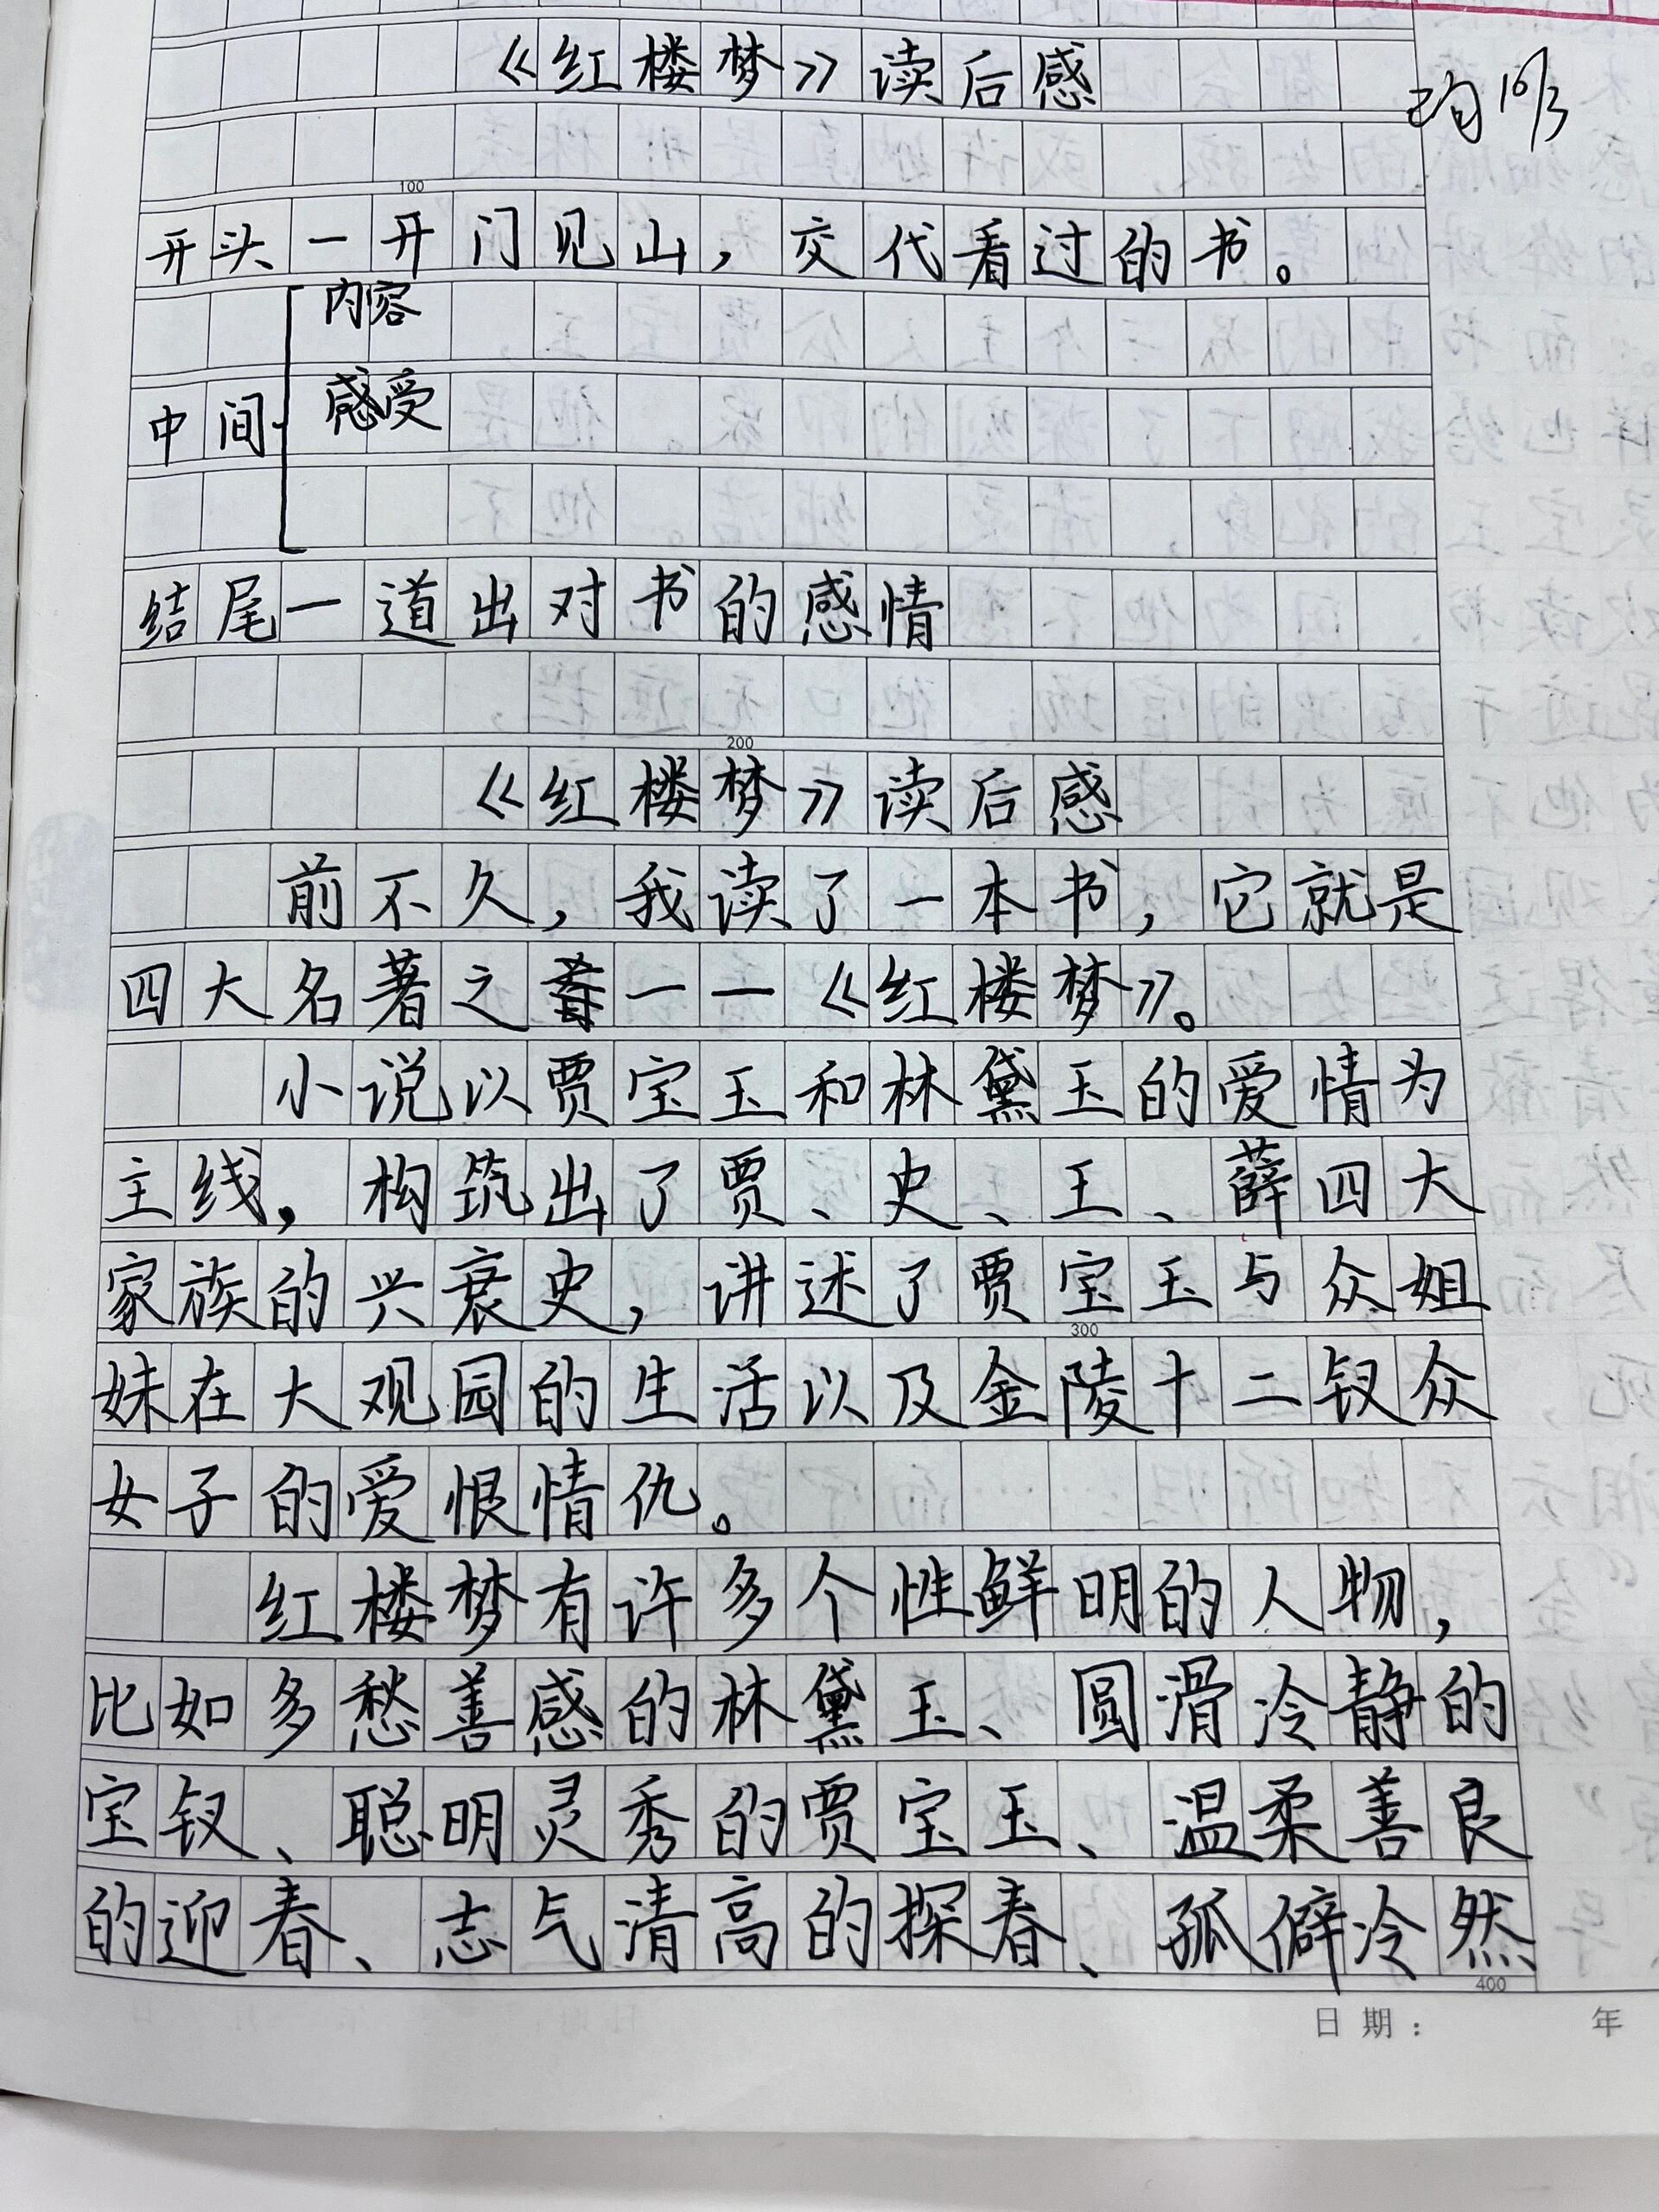 《红楼梦》读后感
10/3
100
开头一开门见山，交代看过的书。
内容
感受
中间
结尾一道出对书的感情
200
《红楼梦》读后感
前不久，我读了一本书，它就是
四大名著之首一一《红楼梦》。
小说以贾宝玉和林黛玉的爱情为
主线，构筑出了贾、史、王、薛四大
家族的兴衰史，讲述了贾宝玉与众姐
300
妹在大观园的生活以及金陵十二钗众
女子的爱恨情仇。
红楼梦有许多个性鲜明的人物，
比如多愁善感的林黛玉、圆滑冷静的
宝钗、聪明灵秀的贾宝玉、温柔善良
的迎春、志气清高的探春、孤僻冷然
400
日期： 年